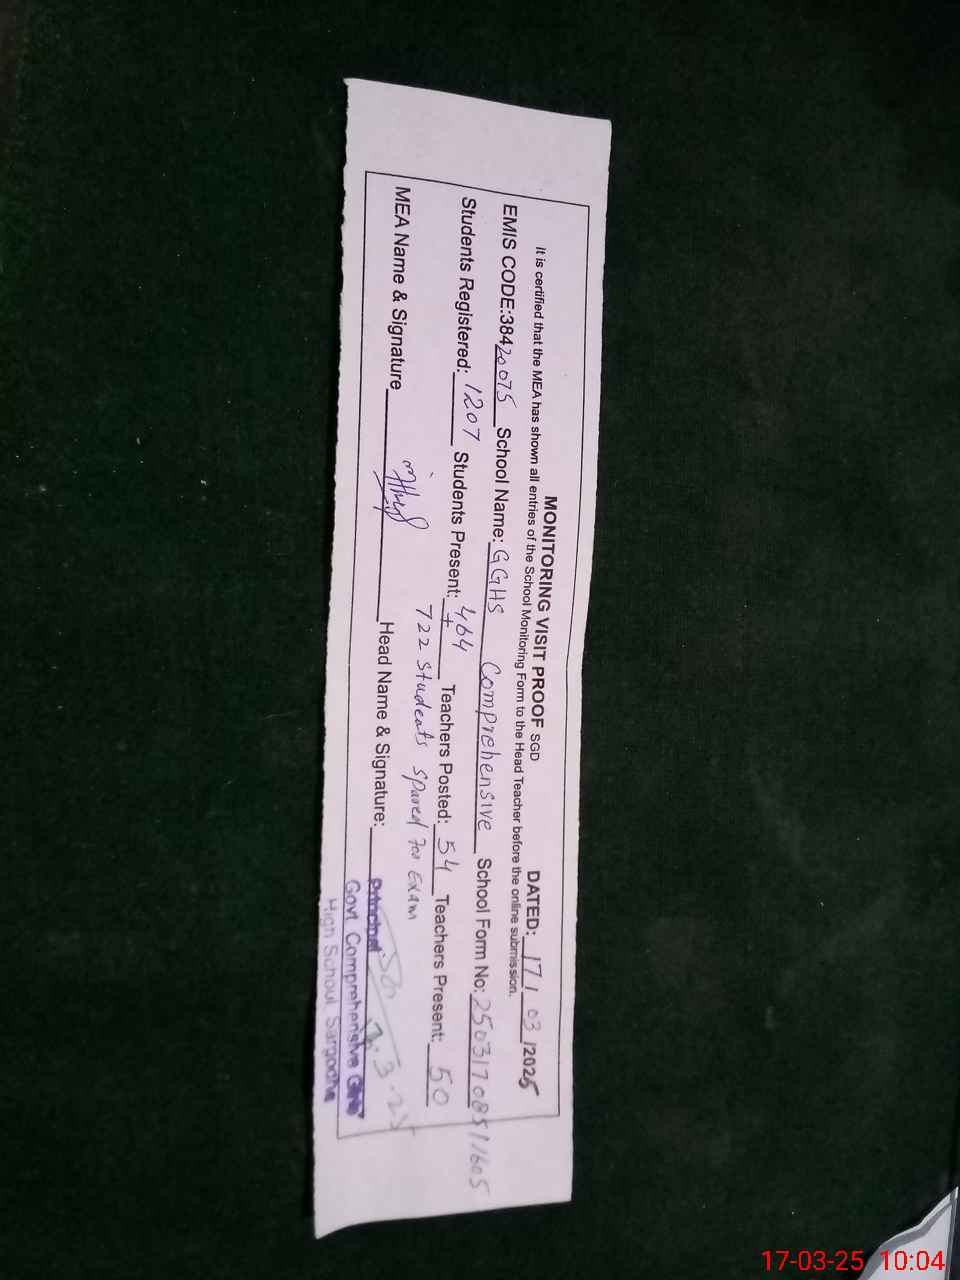 MONITORING VISIT PROOF SGD DATED: 17/03/2025
It is certified that the MEA has shown all entries of the School Monitoring Form to the Head Teacher before the online submission.
EMIS CODE:38420075 School Name: GGHS Comprehensive School Form No: 25031708511605
Students Registered: 1207 Students Present: 464 Teachers Posted: 54 Teachers Present: 50
+
722 Students spared for Exam
MEA Name & Signature Head Name & Signature:
.3.25
Principal
Govt Comprehensive Girls
High School Sargodha
17-03-25 10:04